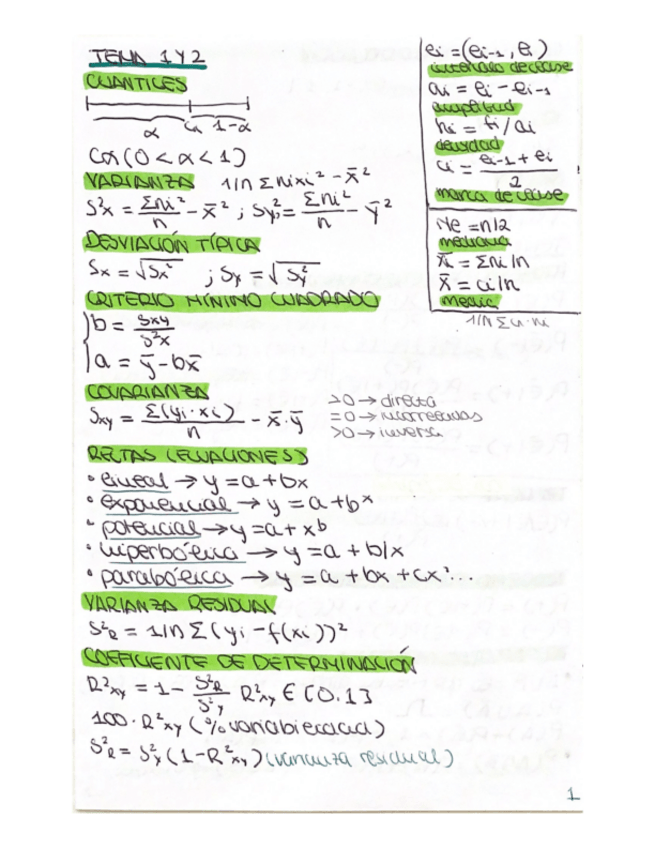 TEMA 1 Y 2
CUANTILES
α Cα 1-α
Cα (0 < α < 1)
VARIANZA 1/n Σnixi² - x̄²
S²x = Σni²/n - x̄² ; Sy² = Σni²/n - ȳ²
DESVIACIÓN TÍPICA
Sx = √Sx² ; Sy = √Sy²
CRITERIO MÍNIMO CUADRADO
b = Sxy/S²x
a = ȳ - bx̄
COVARIANZA
Sxy = Σ(yi · xi)/n - x̄·ȳ
>0 → directa
=0 → incorreladas
>0 → inversa
RECTAS (ECUACIONES)
• lineal → y = a + bx
• exponencial → y = a + bˣ
• potencial → y = a + xb
• hiperbólica → y = a + b/x
• parabólica → y = a + bx + cx²
VARIANZA RESIDUAL
S²R = 1/n Σ(yi - f(xi))²
COEFICIENTE DE DETERMINACIÓN
R²xy = 1 - S²R/S²y R²xy ∈ [0.1]
100 · R²xy (% variabilidad)
S²R = S²y (1 - R²xy) (varianza residual)
ei = (ei-1, ei)
intervalo de clase
ai = ei - ei-1
amplitud
hi = fi/ai
densidad
ci = ei-1 + ei/2
marca de clase
Me = n/2
mediana
x̄i = Σni/n
x̄ = ci/n
media
1/n Σci·ni
1